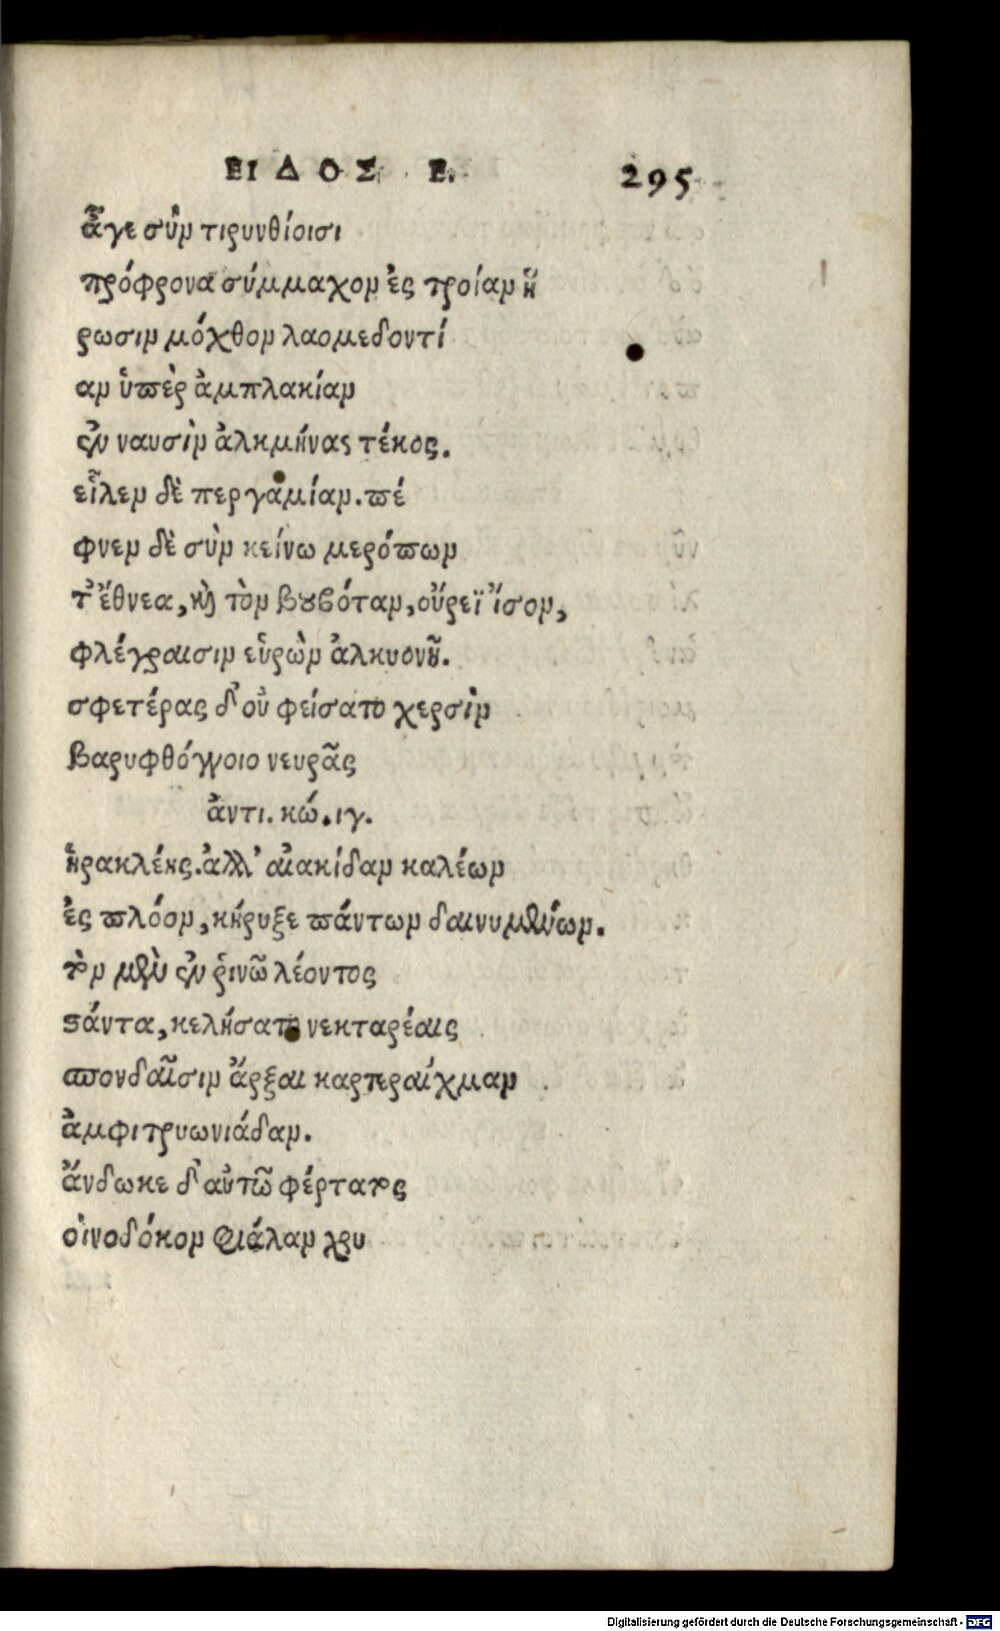 ΕΙΔΟΣ Ε. 295
ἆγε σὺν τιρυνθίοισι
πρόφρονα σύμμαχον ἐς τροίαν ἥ
ρωσιν μόχθον λαομεδοντί
αν ὑπὲρ ἀμπλακίαν
ἐν ναυσὶν ἀλκμήνας τέκος.
εἷλεν δὲ περγαμίαν. πέ
φνεν δὲ σὺν κείνω μερόπων
τ' ἔθνεα, καὶ τὸν βουβόταν, οὔρεϊ ἴσον,
φλέγραισιν εὑρὼν ἀλκυονῆ.
σφετέρας δ' οὐ φείσατο χερσὶν
βαρυφθόγγοιο νευρᾶς
ἀντι. κώ. ιγ.
ἡρακλέης. ἀλλ' αἰακίδαν καλέων
ἐς πλόον, κήρυξε πάντων δαινυμένων.
τὸν μὲν ἐν ῥινῶ λέοντος
στάντα, κελήσατο νεκταρέαις
σπονδαῖσιν ἄρξαι καρτεραίχμαν
ἀμφιτρυωνιάδαν.
ἄνδωκε δ' αὐτῶ φέρτατος
οἰνοδόκον φιάλαν χρυ
Digitalisierung gefördert durch die Deutsche Forschungsgemeinschaft - DFG